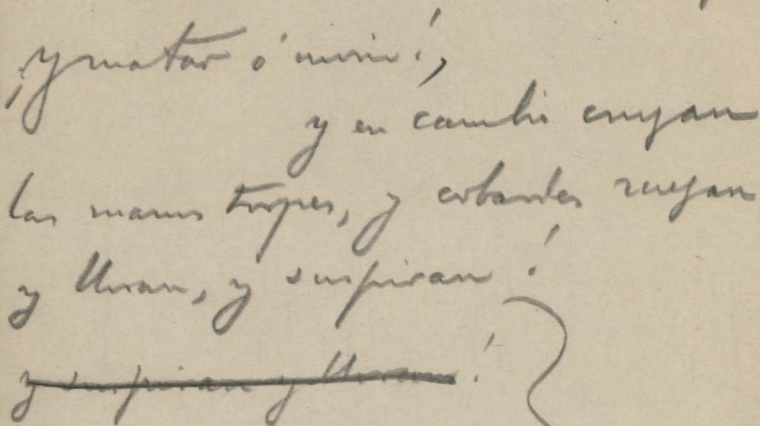 ¡Y matar ó morir!,
y en cambio cruzan
las manos torpes, y cobardes ruegan
y lloran, y suspiran!
y suspiran y lloran!